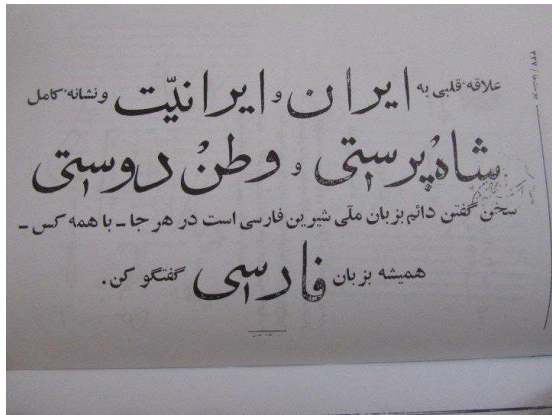 علاقهٔ قلبی به ایران و ایرانیّت و نشانهٔ کامل
شاه‌پرستی و وطن‌دوستی
سخن گفتن دائم بزبان ملّی شیرین فارسی است در هر جا ـ با همه کس ـ
همیشه بزبان فارسی گفتگو کن.